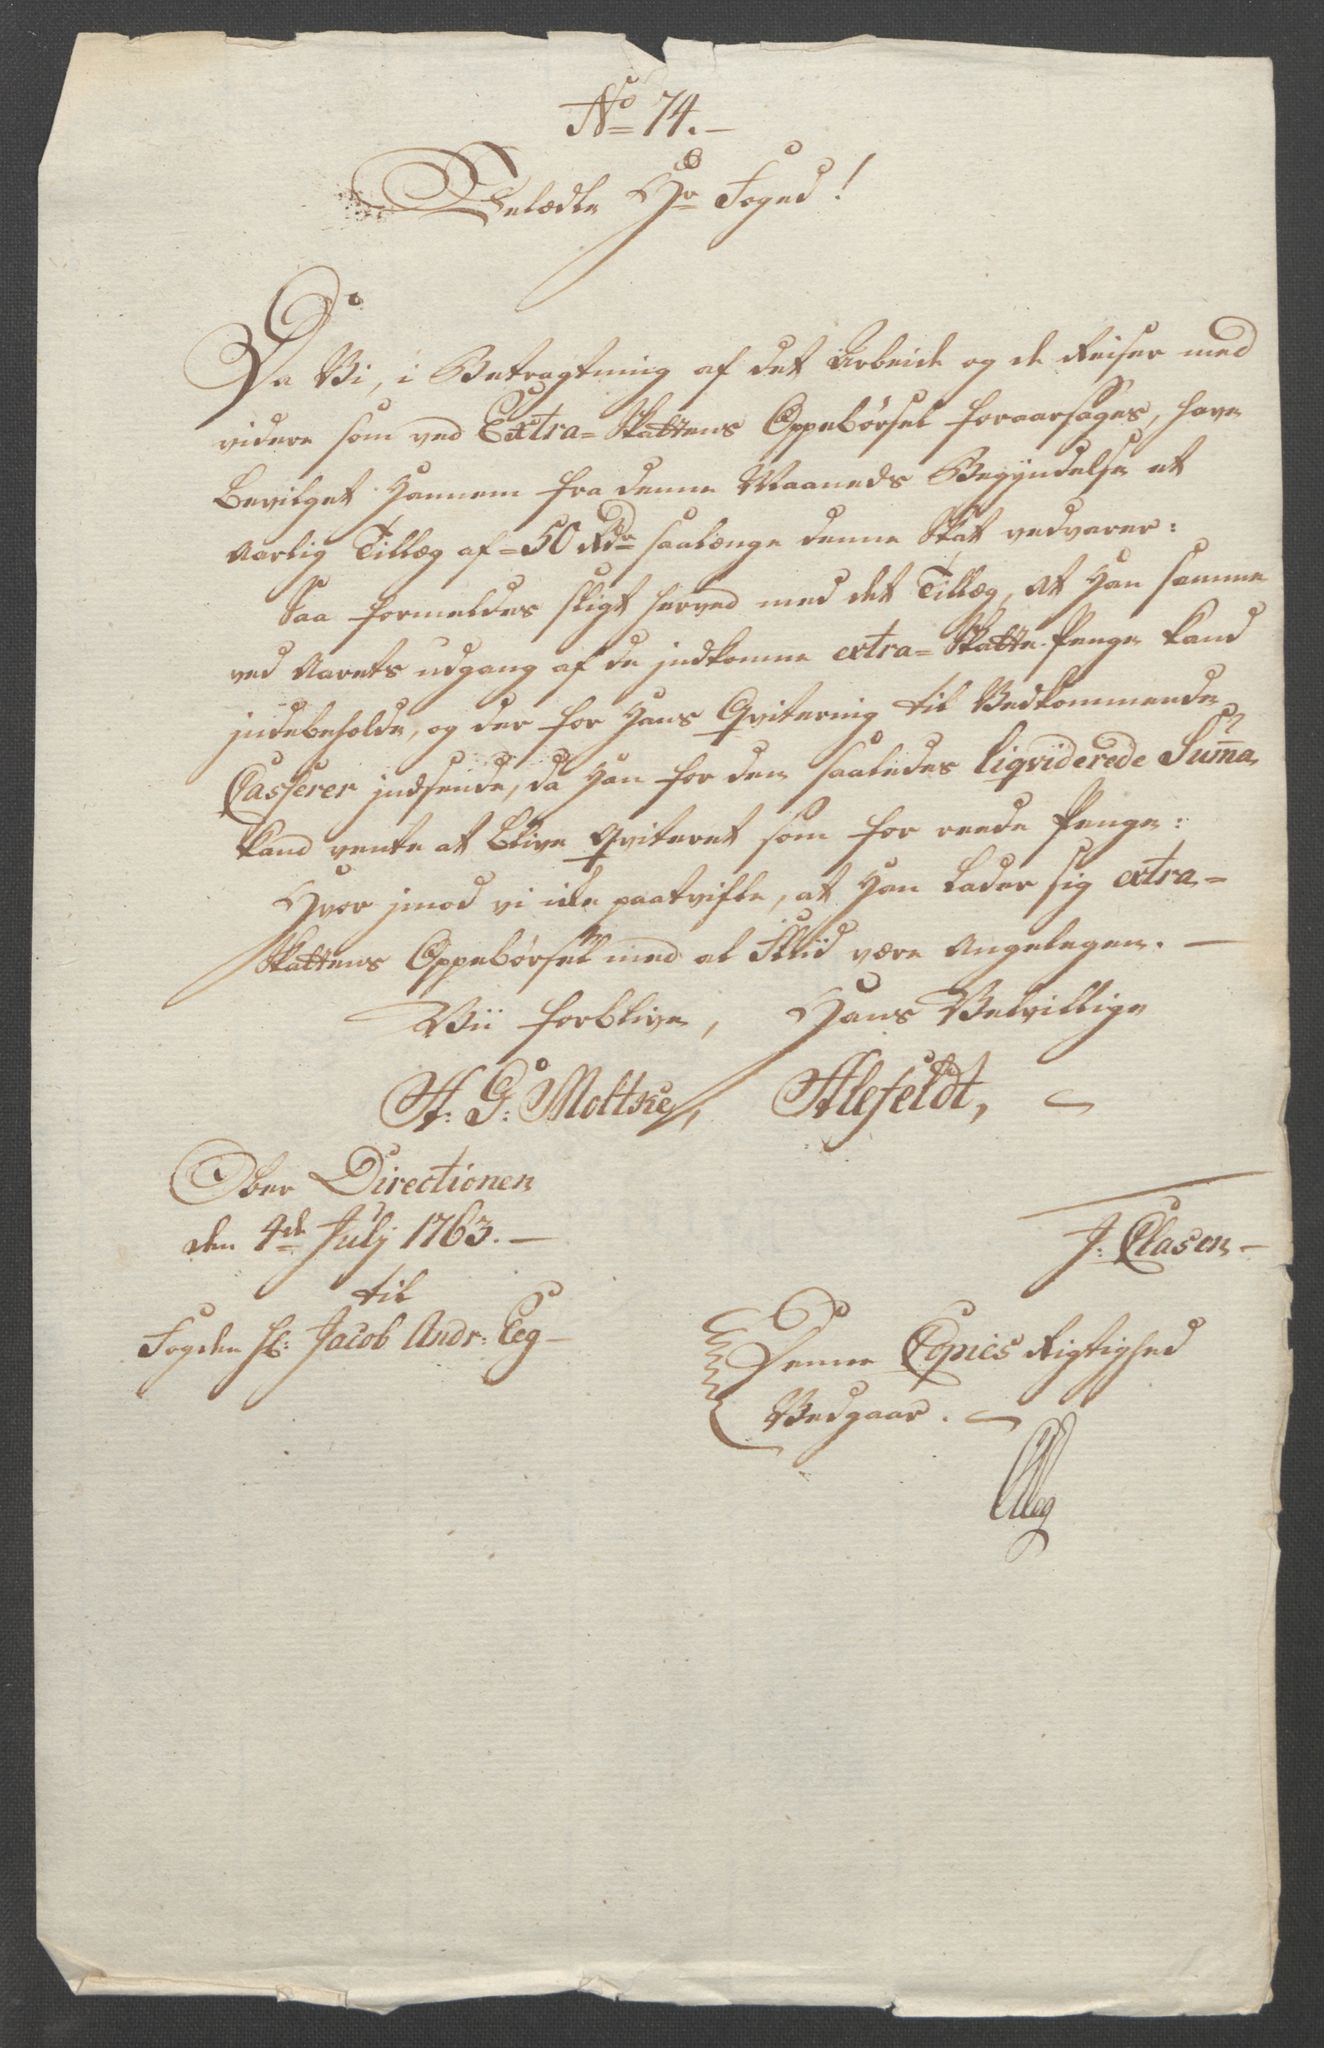 No 74.
Velædle Hr Foged!
Da Vi, i Betragtning af det Arbeide og de Reiser med
videre som ved Extra-Skattens Oppebørsel foraarsages, have
bevilget Hannem fra denne Maaneds Begÿndelse et
aarlig Tillæg af 50 Rdr saalænge denne Skat vedvarer:
Saa formeldes sligt herved med det Tillæg, at Han samme
ved Aarets udgang af de jndkomne extra-Skatte-Penge kand
jndebeholde, og der for Hans Qvitering til Vedkommende
Casserer jndsende, da Han for den saaledes liqviderede Suma
kand vente at blive qviteret som for reede Penge:
Hvor jmod vi ikke paatvifle, at Han lader sig extra-
Skattens Oppebørsel med al Fliid være angelegen.
Vii forblive, Hans Velvillige
A: G: Moltke, Ahlefeldt,
Ober Directionen
den 4de Julj 1763.
J: Clasen
til
Fogden Hr: Jacob Andr: Eeg
Denne Copies Rigtighed
Vedgaar.